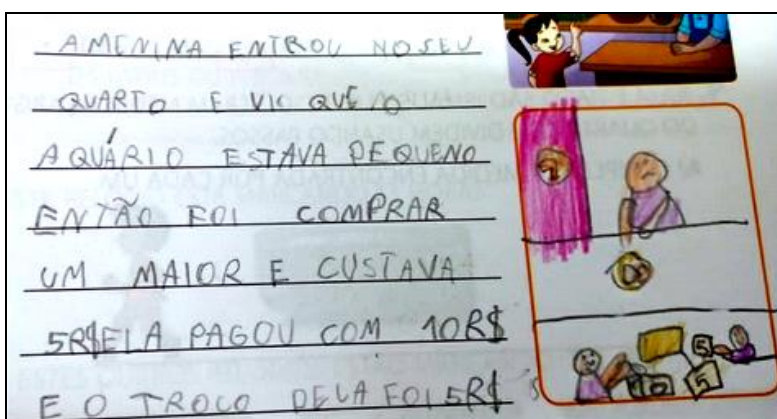 A MENINA ENTROU NO SEU
QUARTO E VIU QUE O
AQUÁRIO ESTAVA PEQUENO
ENTÃO FOI COMPRAR
UM MAIOR E CUSTAVA
5R$ELA PAGOU COM 10R$
E O TROCO DELA FOI 5R$
5
5